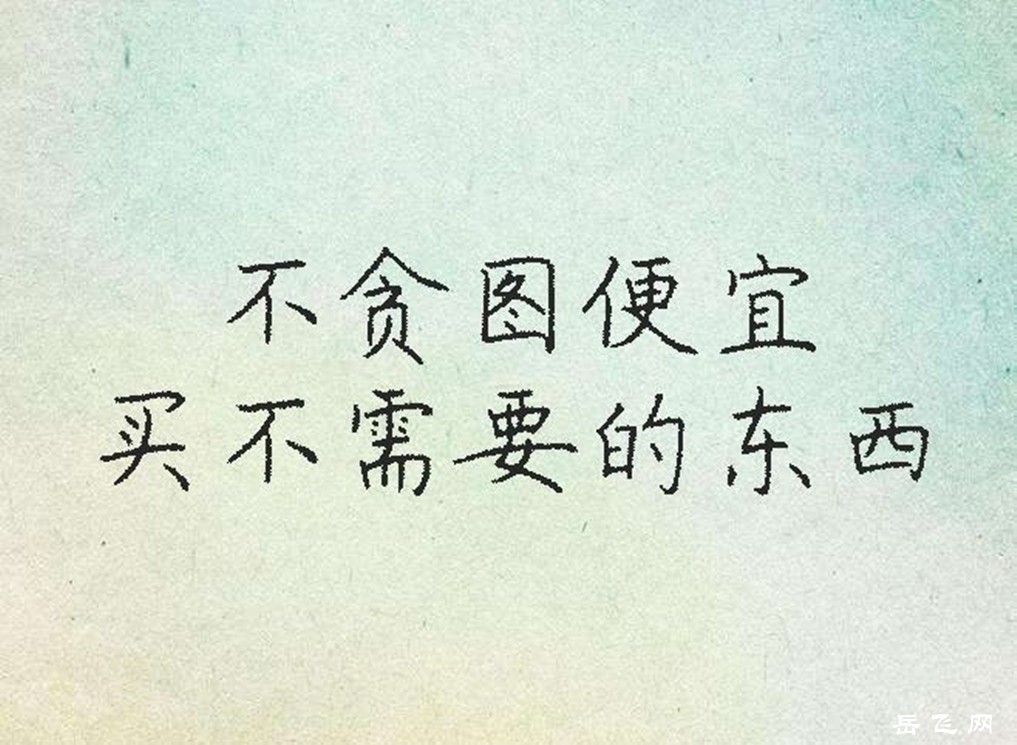 不贪图便宜
买不需要的东西
岳飞网